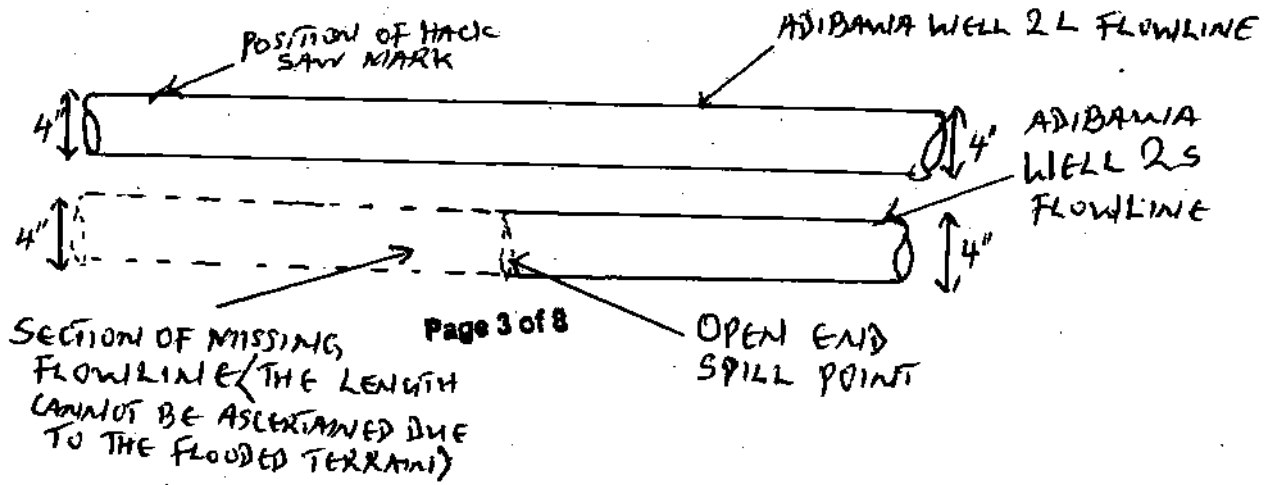 POSITION OF HACK
SAW MARK
ADIBAWA WELL 2L FLOWLINE
4"
4"
ADIBAWA
WELL 2S
FLOWLINE
4"
4"
SECTION OF MISSING
FLOWLINE (THE LENGTH
CANNOT BE ASCERTAINED DUE
TO THE FLOODED TERRAIN)
Page 3 of 8
OPEN END
SPILL POINT